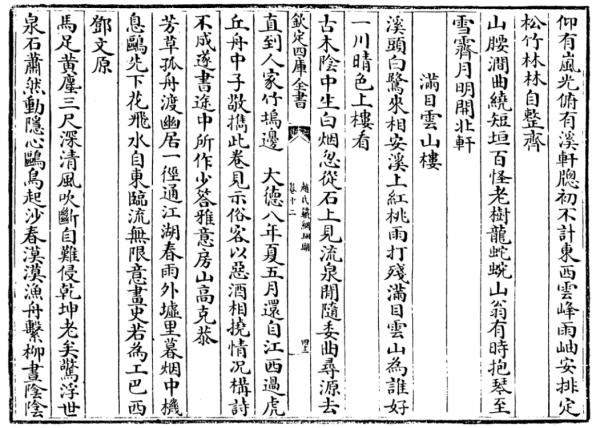 仰有嵐光俯有溪軒牕初不計東西雲峰雨岫安排定
松竹林林自整齊
山腰澗曲繞短垣百怪老樹龍蛇蜿山翁有時抱琴至
雪霽月明開北軒
滿目雲山樓
溪頭白鷺來相安溪上紅桃雨打殘滿目雲山為誰好
一川晴色上樓看
古木陰中生白烟忽從石上見流泉閒隨委曲尋源去
欽定四庫全書
趙氏藏網珊瑚
卷十二
四三
直到人家竹塢邊　大德八年夏五月還自江西過虎
丘舟中子敬攜此卷見示俗客以惡酒相撓情況構詩
不成遂書途中所作少答雅意房山高克恭
芳草孤舟渡幽居一徑通江湖春雨外墟里暮烟中機
息鷗先下花飛水自東臨流無限意畫史若為工巴西
鄧文原
馬足黃塵三尺深清風吹斷自難侵乾坤老矣驚浮世
泉石蕭然動隱心鷗鳥起沙春漠漠漁舟繫柳晝陰陰